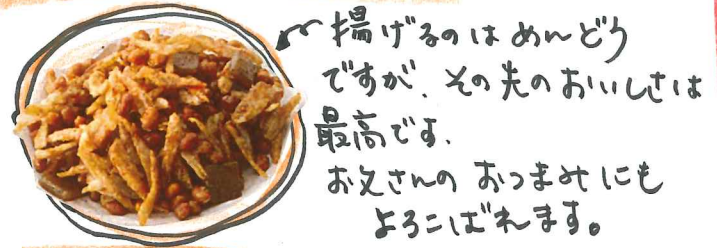 揚げるのは めんどう
ですが、その先の おいしさは
最高です、
お父さんの おつまみにも
よろこばれます。